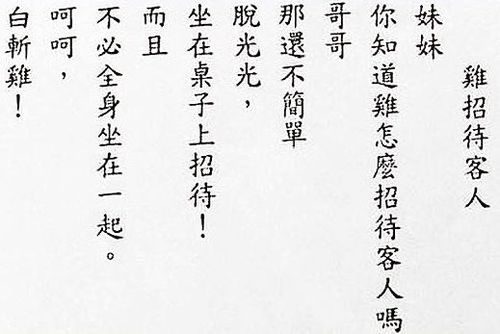 雞招待客人
妹妹
你知道雞怎麼招待客人嗎
哥哥
那還不簡單
脫光光，
坐在桌子上招待！
而且
不必全身坐在一起。
呵呵，
白斬雞！